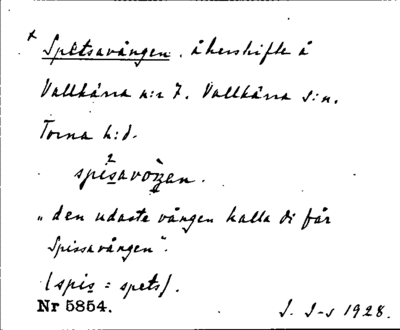 x Spetsavången. åkerskifte å
Vallkärra n:r 7. Vallkärra s:n.
Torna h:d.
spisavoŋen.
„den udaste vången kalla di får
Spissavången".
(spis = spets).
Nr 5854.
J. I-s 1928.